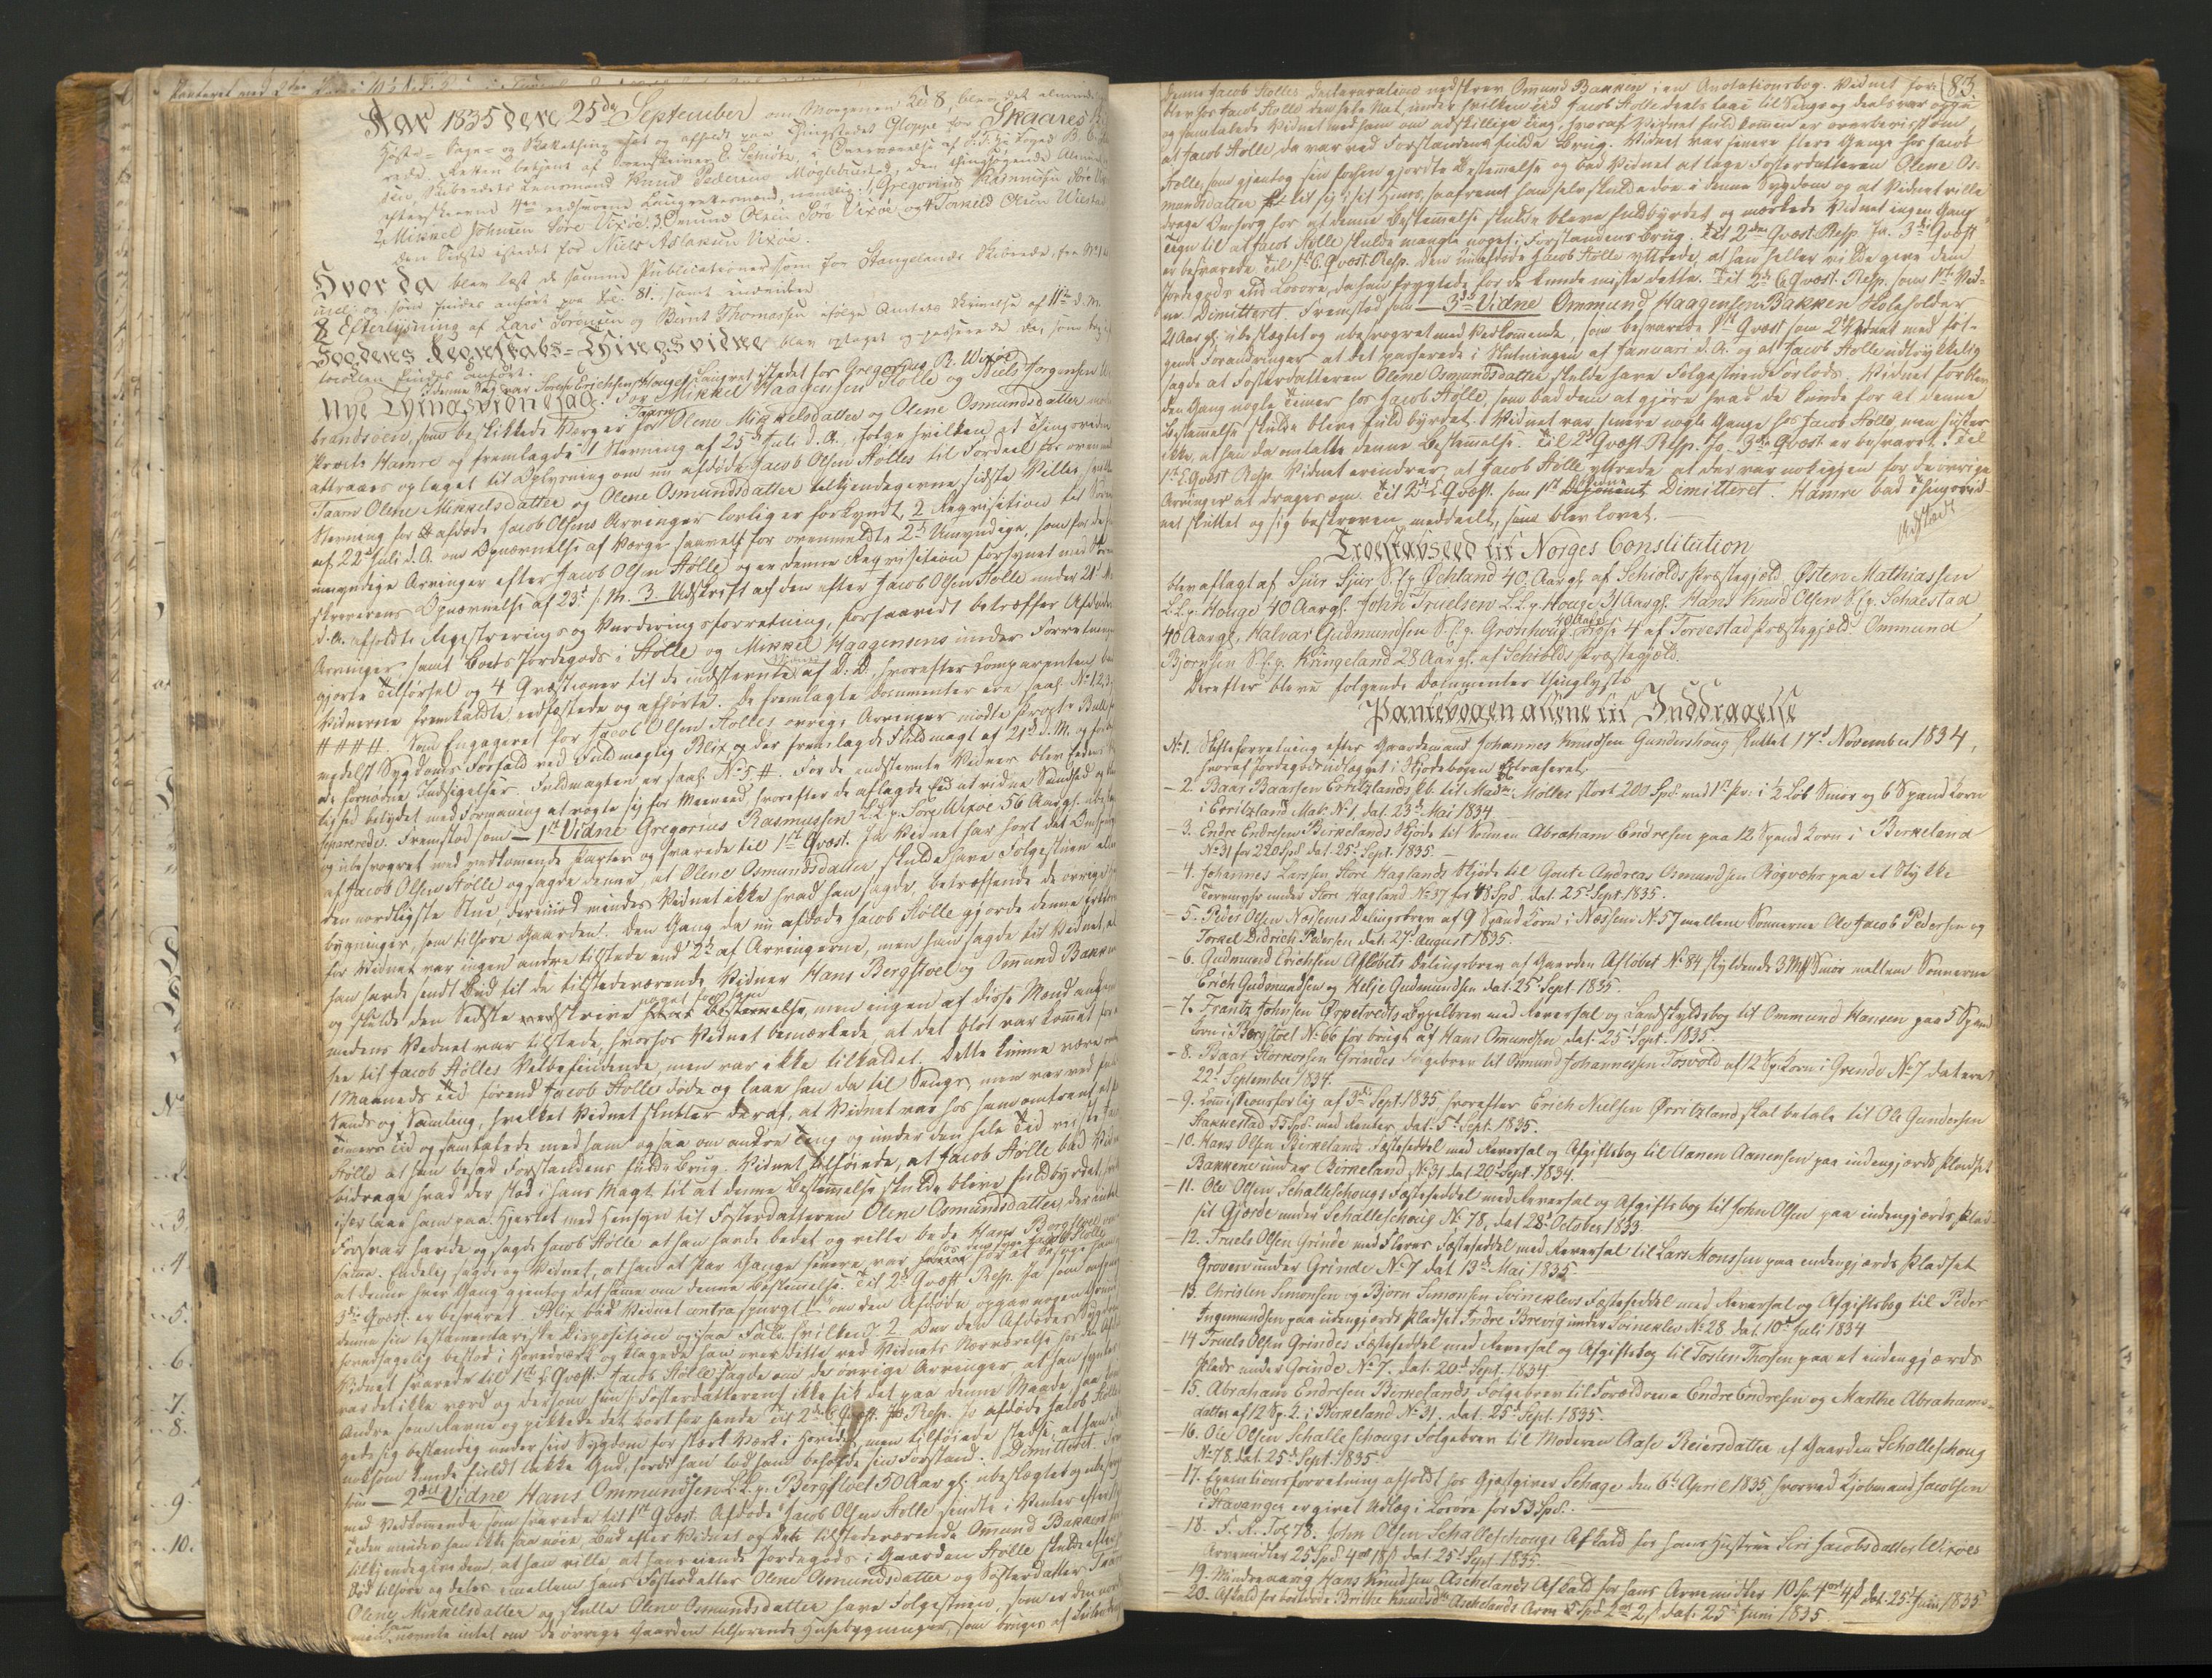 Aar 1835 den 25de September om Morgenen Kl. 8, blev det almindelige
Høste- Sage- og Skattething sat og afholdt paa Thingstedet Gloppe for Skaares Skib-
rede. Retten betjent af Sorenskriver Schiøtz, i Overværelse af
Skibredets Lensmand Knud Pedersen Møglebustad, den thingsøgende Almue og
efterskrevne 4re eedsvorne Laugrettesmænd, nemlig: 1, Gregorius Rasmussen Søre Vixøe
2, Mikkel Johnsen Søre Vixøe, 3, Omund Olsen Søre Vixøe og 4 Torkild Olsen
den Sidste istedet for Niels Aslaksen Vixøe.
Hvor da blev læst de samme Publicationer som for Stangelands Skibrede, fra No 1 til
incl. og som findes anført paa Fol. 81. samt endvidere
8 Efterlysning af Lars Sørensen og Bernt Thomassen ifølge Amtets Skrivelse af 11te d. M.
Sogdens Regnskabs-Thingsvidne blev optaget og passerede den som
tocollen findes anført.
I denne Sag var Søren Erichsen Hauge Laugret istedet for Gregorius R. Wixøe
Nye Thingsvidnesag. For Mikkel Haagensen Stølle og Niels Jørgensen
brandsøen, som beskikkede Verger for Taarn Olene Mikkelsdatter og Olene Osmundsdatter
Procr. Hamre og fremlagde 1 Stevning af 25de Juli d. A., ifølge hvilken et Thingsvidne
attraaes optaget til Oplysning om nu afdøde Jacob Olsen Stølles til Fordeel for ovennævnte
Taarn Olene Mikkelsdatter og Olene Osmundsdatter tilkjendegivne sidste Villie, hvilken
Stevning for afdøde Jacob Olsens Arvinger lovlig er forkyndt, 2 Reqvisition til Soren
af 22de Juli d. A. om Opnævnelse af Værge saavel for ovenmeldte 2de Umyndige, som for
umyndige Arvinger efter Jacob Olsen Stølle og er denne Reqvisition forsynet med Soren
skriverens Opnævnelse af 23de s. M. 3. Udskrift af den efter Jacob Olsen Stølle under 21de
d. A. afholdte Registrerings og Vurderingsforretning, forsaavidt betræffer Afdødes
Arvinger, samt Boets Jordegods i Stølle og Mikkel Haagensens under Forretningen
gjorte Tilførsel og 4 Qvæstioner til de indstevnte Vidner af D. D., hvorefter Comparenten bad
Vidnerne fremkaldte, eedfæstede og afhørte. De fremlagte Documenter ere saal. No 1, 2, 3,
####. Som Engageret for Jacob Olsen Stølles øvrige Arvinger mødte Procr.
medelst Sygdoms Forfald ved Fuldmægtig Blix og der fremlagde Fuldmagt af 21de d. M.
de fornødne Indsigelser. Fuldmagten er saal. No 5 #. For de indstevnte Vidner blev Edens
lighed betydet med Formaning at vogte sig for Meeneed, hvorefter de aflagde Eed at vidne Sandhed og
svarede. Fremstod som — 1ste Vidne Gregorius Rasmussen L.L.p. Søre Wixøe 56 Aar gl.
og ubesvogret med vedkommende Parter og svarede til 1ste Qvæst. Ja Vidnet har hørt det
af Jacob Olsen Stølle og sagde denne, at Olene Osmundsdatter skulde have Folgestuen eller
den nordligste Stue, derimod mindes Vidnet ikke hvad han sagde, betræffende de øvrige Huus
bygninger, som tilhøre Gaarden. Den Gang da nu afdøde Jacob Stølle gjorde denne
for Vidnet var ingen andre tilstede end 2de af Arvingerne, men han sagde til Vidnet, at
han havde sendt Bud til de tilstedeværende Vidner Hans Bergstøel og Omund Bakken
og skulde den Sidste nedskrive noget for ham Bestemmelse, men ingen af disse Mænd
medens Vidnet var tilstede, hvorfor Vidnet bemærkede, at det blot var kommet for at
see til Jacob Stølles Velbefindende, men var ikke tilkaldet. Dette kunne være
1 Maaneds Tid førend Jacob Stølle døde og laae han da til Sengs, men var ved fuld
Sands og Samling, hvilket Vidnet slutter deraf, at Vidnet var hos ham omtrent
Timers Tid og samtalede med ham ogsaa om andre Ting og under den hele Tid viste
Stølle at han besad Forstandens fulde Brug. Vidnet tilføiede, at Jacob Stølle bad Vidnet
bidrage hvad der stod i hans Magt til at denne Bestemmelse skulde blive fuldbyrdet,
især laae ham paa Hjertet med Hensyn til Fosterdatteren Olene Osmundsdatter, der intet
Forsvar havde og sagde Jacob Stølle at han havde bedet og ville bede Hans Bergstøel om
samme. Endelig sagde og Vidnet, at han et Par Gange senere var hos denne Jacob Stølle for at besøge ham
at denne hver Gang gjentog det samme om denne Bestemmelse. Til 2de Qvæst. Resp. Ja som
3die Qvæst. er besvaret. Blix bad Vidnet contraspurgt 1 om den Afdøde opgav nogen Grund
denne sin testamentariske Disposition ogsaa Fald hvilken? 2 Om den Afdødes Sygdom
hovedsagelig bestod i Hovedværk og klagede han over dette ved Vidnets Nærværelse hos den
Vidnet svarede til 1ste C. Qvæst. Jacob Stølle sagde om de øvrige Arvinger at han syntes
var det ikke værd og dersom hun (: Fosterdatteren :) ikke fik det paa denne Maade saa
Andre som Ravne og pikkede det bort for hende. Til 2de C. Qvæst. Resp. Ja afdøde Jacob Stølle
gede sig bestandig under sin Sygdom for stærk Værk i Hovedet, men tilføiede stedse, at han
noksom kunde fuldt takke Gud, fordi han lod ham beholde sin Forstand. Dimitteret.
som — 2det Vidne Hans Ommundsen L.L.p. Bergstøel 50 Aar gl. ubeslægtet og
med Vedkommende, som svarede til 1ste Qvæst. Afdøde Jacob Olsen Stølle sendte i Vinter efter
Tiden mindes han ikke saa nøie, Bud efter Vidnet og det tilstedeværende Omund Bakken
tilkjendegive dem, at han ville, at hans eiende Jordegods i Gaarden Stølle skulde efter
Død tilhøre og deles imellem hans Fosterdatter Olene Osmundsdatter og Søsterdatter Taarn
Olene Mikkelsdatter og skulle Olene Osmundsdatter have Folgestuen, som er den
men han nævnte intet om de øvrige Gaarden tilhørende Huusebygninger, som bruges af
83.
Denne Jacob Stølles Declaration nedskrev Omund Bakken i en Anotationsbog. Vidnet for-
blev hos Jacob Stølle den hele Nat, under hvilken Tid Jacob Stølle deels laae til Sengs og deels var oppe
og samtalede Vidnet med ham om adskillige Ting, hvoraf Vidnet fuldkommen er overbevist om,
at Jacob Stølle da var ved Forstandens fulde Brug. Vidnet var senere flere Gange hos Jacob
Stølle, som gjentog sin forhen gjordte Bestemmelse og bad Vidnet at tage Fosterdatteren Olene Os-
mundsdatter til sig i sit Huus, saafremt han selv skulde døe i denne Sygdom og at Vidnet ville
drage Omsorg for at denne Bestemmelse skulde bleve fuldbyrdet og mærkede Vidnet ingen Gang
Tegn til at Jacob Stølle skulde mangle noget i Forstandens Brug. Til 2den Qvæst. Resp. Ja. 3die Qvæst.
er besvarede. Til 1ste C. Qvæst. Resp. den nuafdøde Jacob Stølle yttrede, at han heller vilde give dem
Jordegods end Løsøre, da han frygtede for de kunde miste dette. Til 2de C. Qvæst. Resp. som 1ste Vid-
ne. Dimitteret. Fremstod som — 3die Vidne Ommund Haagensen Bakken Skoleholder
21 Aar gl., ubeslægtet og ubesvogret med Vedkommende, som besvarede 1ste Qvæst. som 2det Vidne med føl-
gende Forandringer at det passerede i Slutningen af Januari d. A. og at Jacob Stølle udtrykkelig
sagde at Fosterdatteren Olene Osmundsdatter skulde have Folgestuen forlods. Vidnet forblev
den Gang nogle Timer hos Jacob Stølle, som bad dem at gjøre hvad de kunde for at denne
Bestemmelse skulde blive fuldbyrdet. Vidnet var senere nogle Gange hos Jacob Stølle, men husker
ikke, at han da omtalte denne Bestemmelse. Til 2de Qvæst. Resp. Ja. 3die Qvæst. er besvaret. Til
1ste C. Qvæst. Resp. Vidnet erindrer, at Jacob Stølle yttrede at der var nok igjen for de øvrige
Arvinger at drages om. Til 2de C. Qvæst. som 1ste Vidne. Dimitteret. Hamre bad Thingsvid-
net sluttet og sig beskreven meddeelt, som blev lovet.
Troeskabseed til Norges Constitution
blev aflagt af Sjur Sjur S. f.p. Øchland 40 Aar gl. af Schiolds Præstegjæld, Østen Mathiassen
L.L.p. Houge 40 Aar gl. John Truelsen L.L.p. Houge, 31 Aar gl. Hans Knud Olsen S.f.p. Schaestad
40 Aar gl., Halvar Gudmundsen S.f.p. Gronhoug 40 Aar gl. disse 4 af Torvestad Præstegjæld. Ommund
Bjørnsen S.f.p. Kringeland 28 Aar gl. af Schiolds Præstegjæld.
Derefter bleve følgende Documenter thinglyste
Pantebogen allene til Inddragelse
No 1. Skifteforretning efter Gaardemand Johannes Knudsen Gundershoug, sluttet 17de November 1834,
hvoraf Jordegodsudlægget i Skjødebogen Extraheret.
- 2. Baar Baarsen Erritzlands Pb. til Madm. Møller stort 200 Spd. med 1ste Pr. i ½ Løb Smør og 6 Spand Korn
i Erritzland Mat. No 1, dat. 23de Mai 1834
- 3. Endre Endresen Birkelands Skjøde til Sønnen Abraham Endresen paa 12 Spand Korn i Birkeland
No 31 for 220 Spd. dat. 25de Sept. 1835.
- 4. Johannes Larssen Store Haglands Skjøde til Goute Andreas Osmundsen Røgvær paa et Stykke
Torvmyhr under Store Hagland No 37 for 48 Spd. dat. 25de Sept. 1835.
- 5. Peder Olsen Næssens Delingsbrev af 9 Spand Korn i Næssen No 57 mellem Sønnerne Ole Jacob Pedersen og
Torkel Didrich Pedersen dat. 27de August 1835.
- 6. Gudmund Erichsen Afløbets Delingsbrev af Gaarden Afløbet No 84 skyldende 3 Mk Smør mellem Sønnerne
Erich Gudmundsen og Helje Gudmundsen dat. 25de Sept. 1835.
- 7. Frantz Johnsen Ørpetvedts Bygselbrev med Reversal og Landskyldsbog til Ommund Hansen paa 5 Spand
Korn i Bergstøel No 66 før brugt af Hans Ommundsen, dat. 25de Sept. 1835.
- 8. Baar Størkersen Grindes Folgebrev til Osmund Johannessen Tosvold af 12 Sp. Korn i Grinde No 7 dateret
22de September 1834.
- 9. Commissionsforlig af 3die Sept. 1835 hvorefter Erich Nielsen Ørritzland skal betale til Ole Gundersen
Stakkestad 55 Spd. med Renter, dat. 5te Sept. 1835.
- 10. Hans Olsen Birkelands Fæsteseddel med Reversal og Afgiftsbog til Aanen Aanensen paa indengjærds Pladset
Bakkene under Birkeland No 31 dat. 20de Sept. 1834.
- 11. Ole Olsen Schalleschougs Fæsteseddel med Reversal og Afgiftsbog til John Olsen paa indengjærds Plad-
set Gjærde under Schalleschoug No 78, dat. 28de October 1833
- 12. Truels Olsen Grinde med Fleres Fæsteseddel med Reversal til Lars Monssen paa indengjærds Pladset
Groven under Grinde No 7 dat. 13de Mai 1835.
- 13. Christen Simonsen og Bjørn Simonsen Svineklevs Fæsteseddel med Reversal og Afgiftsbog til Peder
Ingemundsen paa udengjærds Pladset Indre Brevig under Svineklev No 28 dat. 10de Juli 1834
- 14 Truels Olsen Grindes Fæsteseddel med Reversal og Afgiftsbog til Tosten Thorsen paa et indengjærds
Plads under Grinde No 7. dat. 20de Sept. 1834.
- 15. Abraham Endresen Birkelands Folgebrev til Forældrene Endre Endresen og Marthe Abrahams-
datter af 12 Sp. K. i Birkeland No 31. dat. 25de Sept. 1835.
- 16. Ole Olsen Schalleschougs Folgebrev til Moderen Aase Reiersdatter af Gaarden Schalleschoug
No 78 dat. 25de Sept. 1835.
- 17. Executionsforretning afholdt hos Gjæstgiver Schage den 6te April 1835, hvorved Kjøbmand Jacobsen
i Stavanger er givet Udlæg i Løsøre for 53 Spd.
- 18. F. A. Fol 78. John Olsen Schalleschougs Afkald for hans Hustrue Siri Jacobsdatter Wixøes
Arvemidler 25 Spd. 4 ort 18 s dat. 25de Sept. 1835
- 19. Mindreaarig Hans Knudsen Aschelands Afkald for hans Arvemidler 10 Sp. 4 ort 4 s dat. 25de Juni 1835
- 20. Afkald for Brithe Knudsdtr. Aschelands Arv 5 Spd. 2 ort 2 s dat. 25de Juni 1835